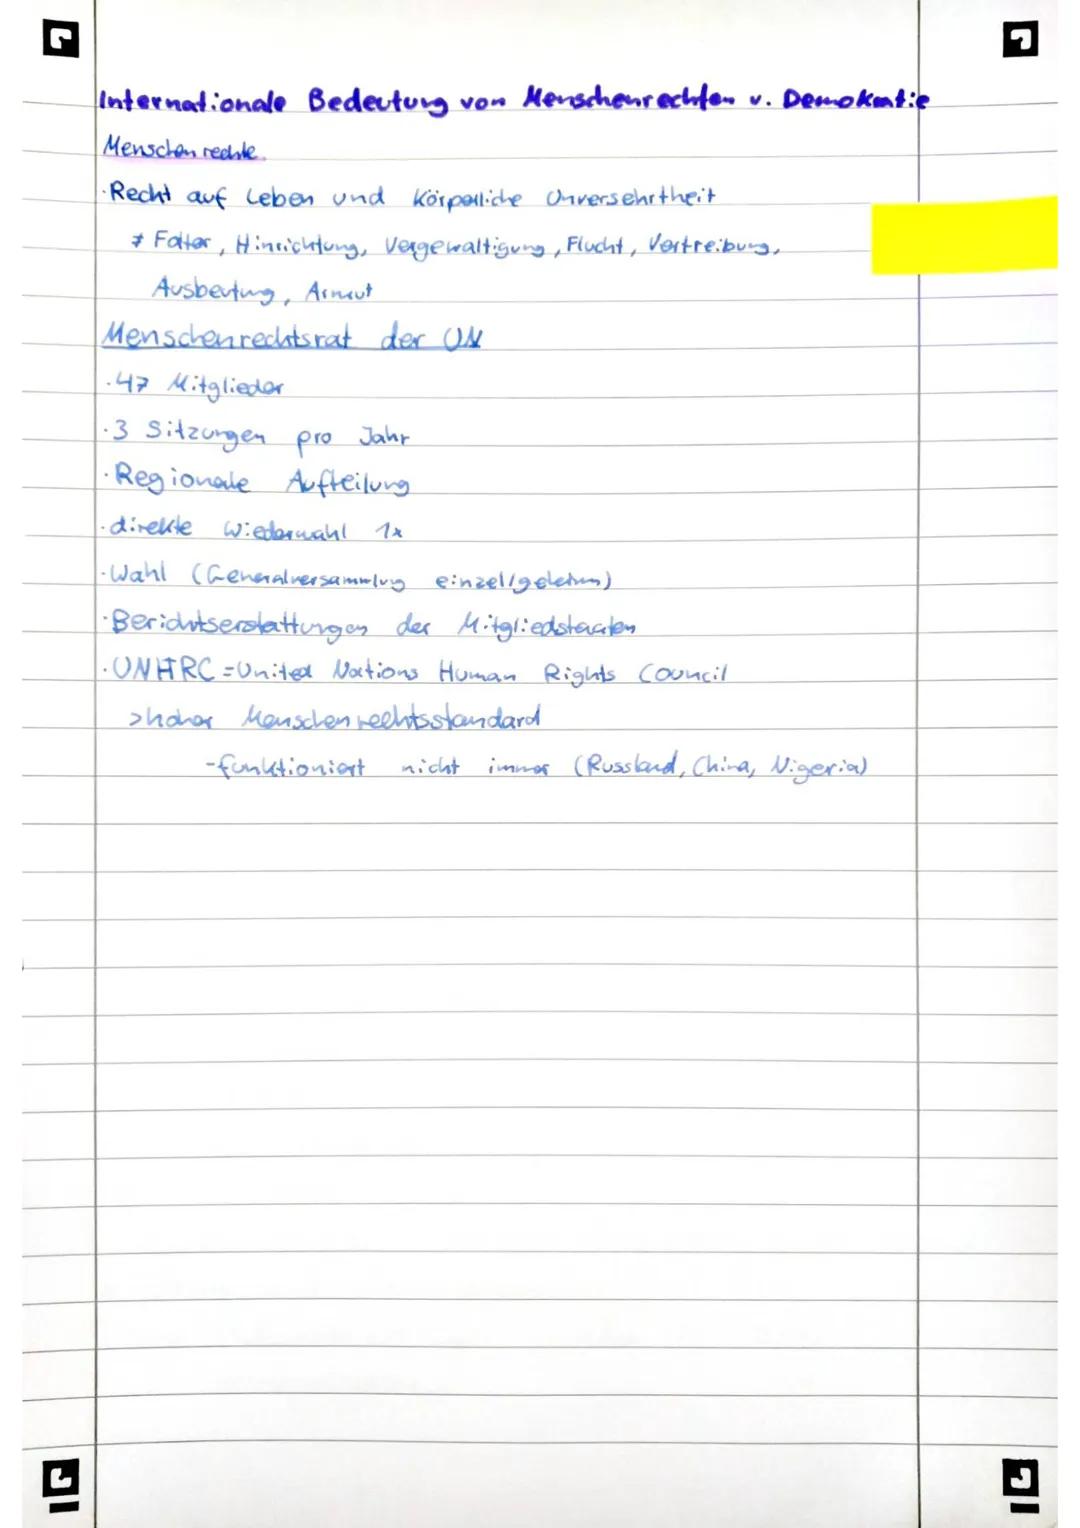 Internationale Bedeutung von Menschenrechten v. Demokratie
Menschenrechte
·Recht auf Leben und Körperliche Unversehrtheit
≠ Folter, Hinrichtung, Vergewaltigung, Flucht, Vertreibung,
Ausbeutung, Armut
Menschenrechtsrat der UN
·47 Mitglieder
·3 Sitzungen pro Jahr
·Regionale Aufteilung
·direkte Wiederwahl 1x
·Wahl (Generalversammlung einzel/geheim)
·Berichtserstattungen der Mitgliedstaaten
·UNHRC = United Nations Human Rights Council
>hoher Menschenrechtsstandard
-funktioniert nicht immer (Russland, China, Nigeria)